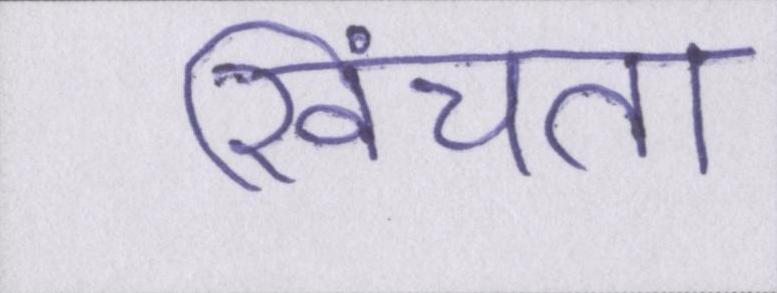 खिंचता